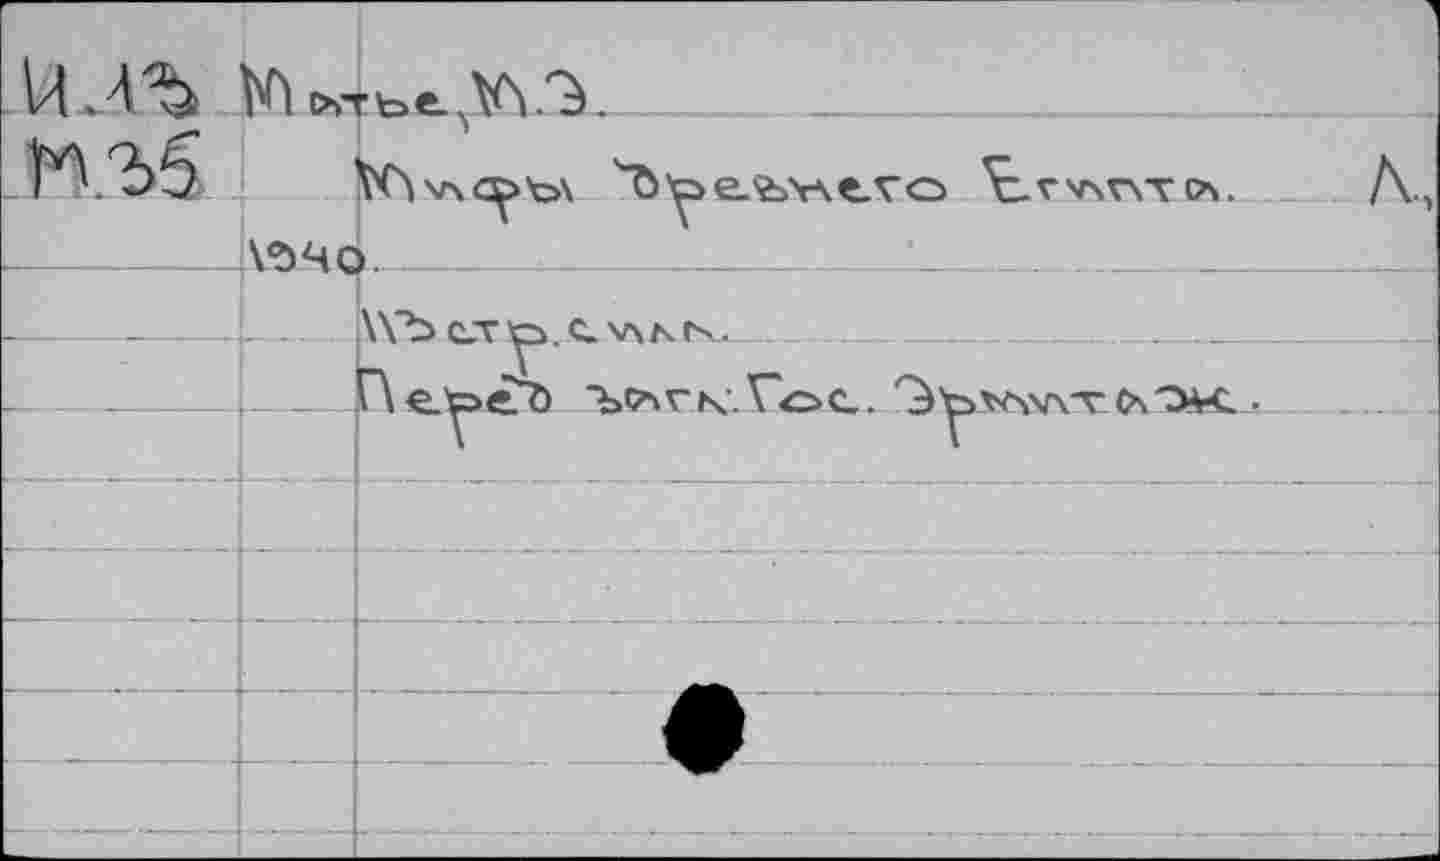 И.13 Матье, М.Э.
М.35 Мифы Древнего Египта. Л.,
1940.
Перед загл: Гос. Эрмитаж.